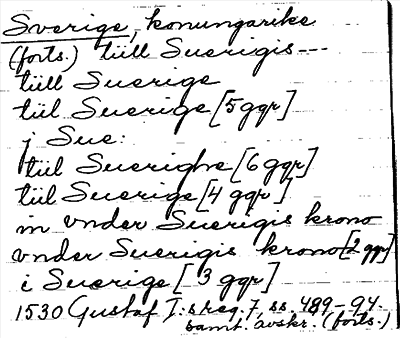 Sverige, konungarike
(forts.) tüll Suerigis---
tüll Suerige
tül Suerige [5 ggr]
j Sue:
tül Suerighe [6 ggr]
tül Suerige [4 ggr]
in vnder Suerigis krono
vnder Suerigis krono [2 ggr]
i Suerige [3 ggr]
1530 Gustaf I:s reg. 7, ss. 489,-94.
samt. avskr. (forts.)